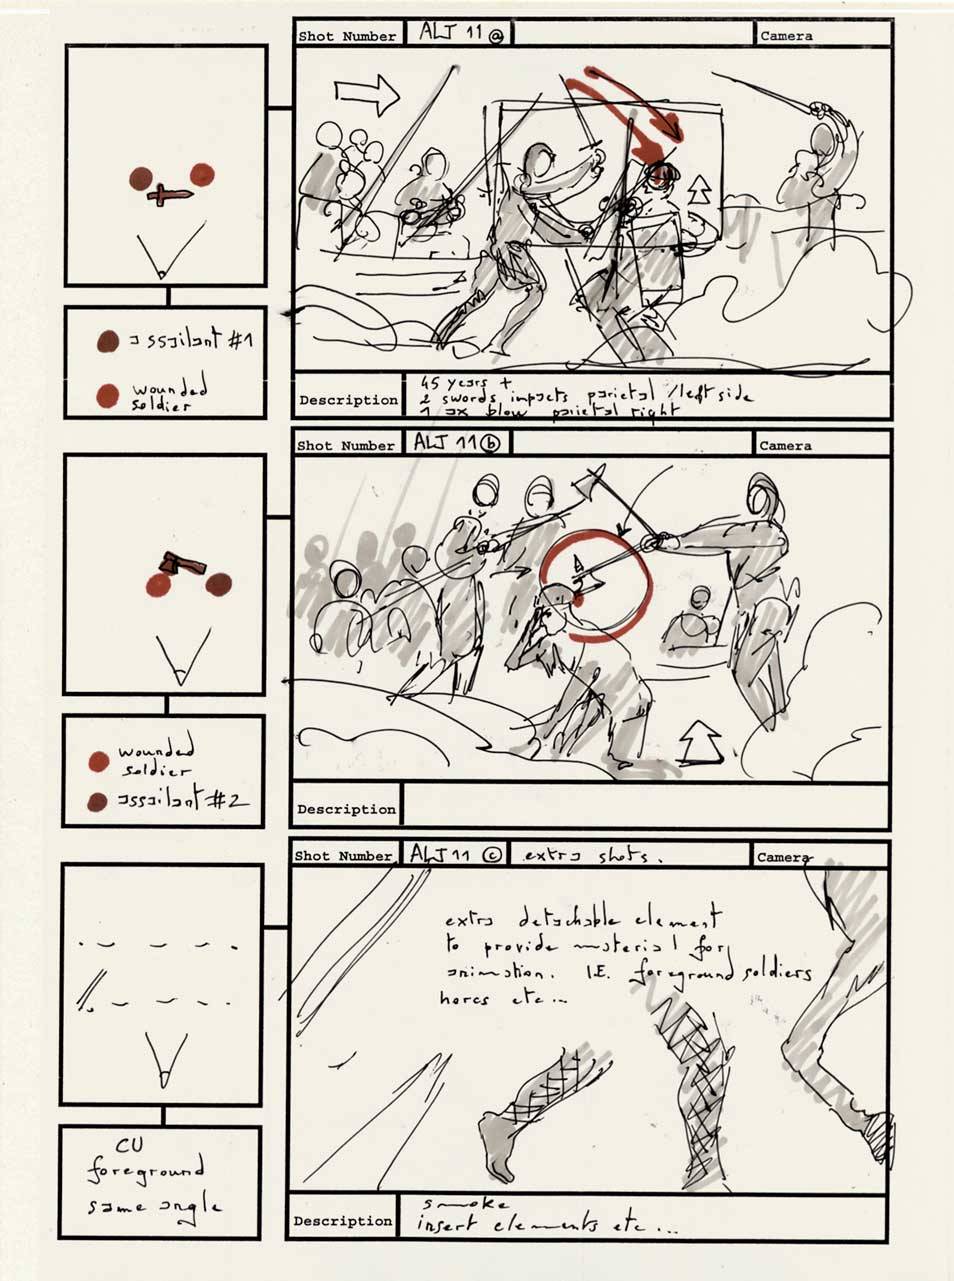 Shot Number ALT 11 a Camera
assailant #1
wounded
soldier
Description
45 years +
2 swords impacts parietal / left side
1 ax blow parietal right
Shot Number ALT 11 b Camera
wounded
soldier
assailant #2
Description
Shot Number ALT 11 c extra shots. Camera
extra detachable element
to provide material for
animation. I.E. foreground soldiers
horses etc...
CU
foreground
same angle
Description
smoke
insert elements etc...